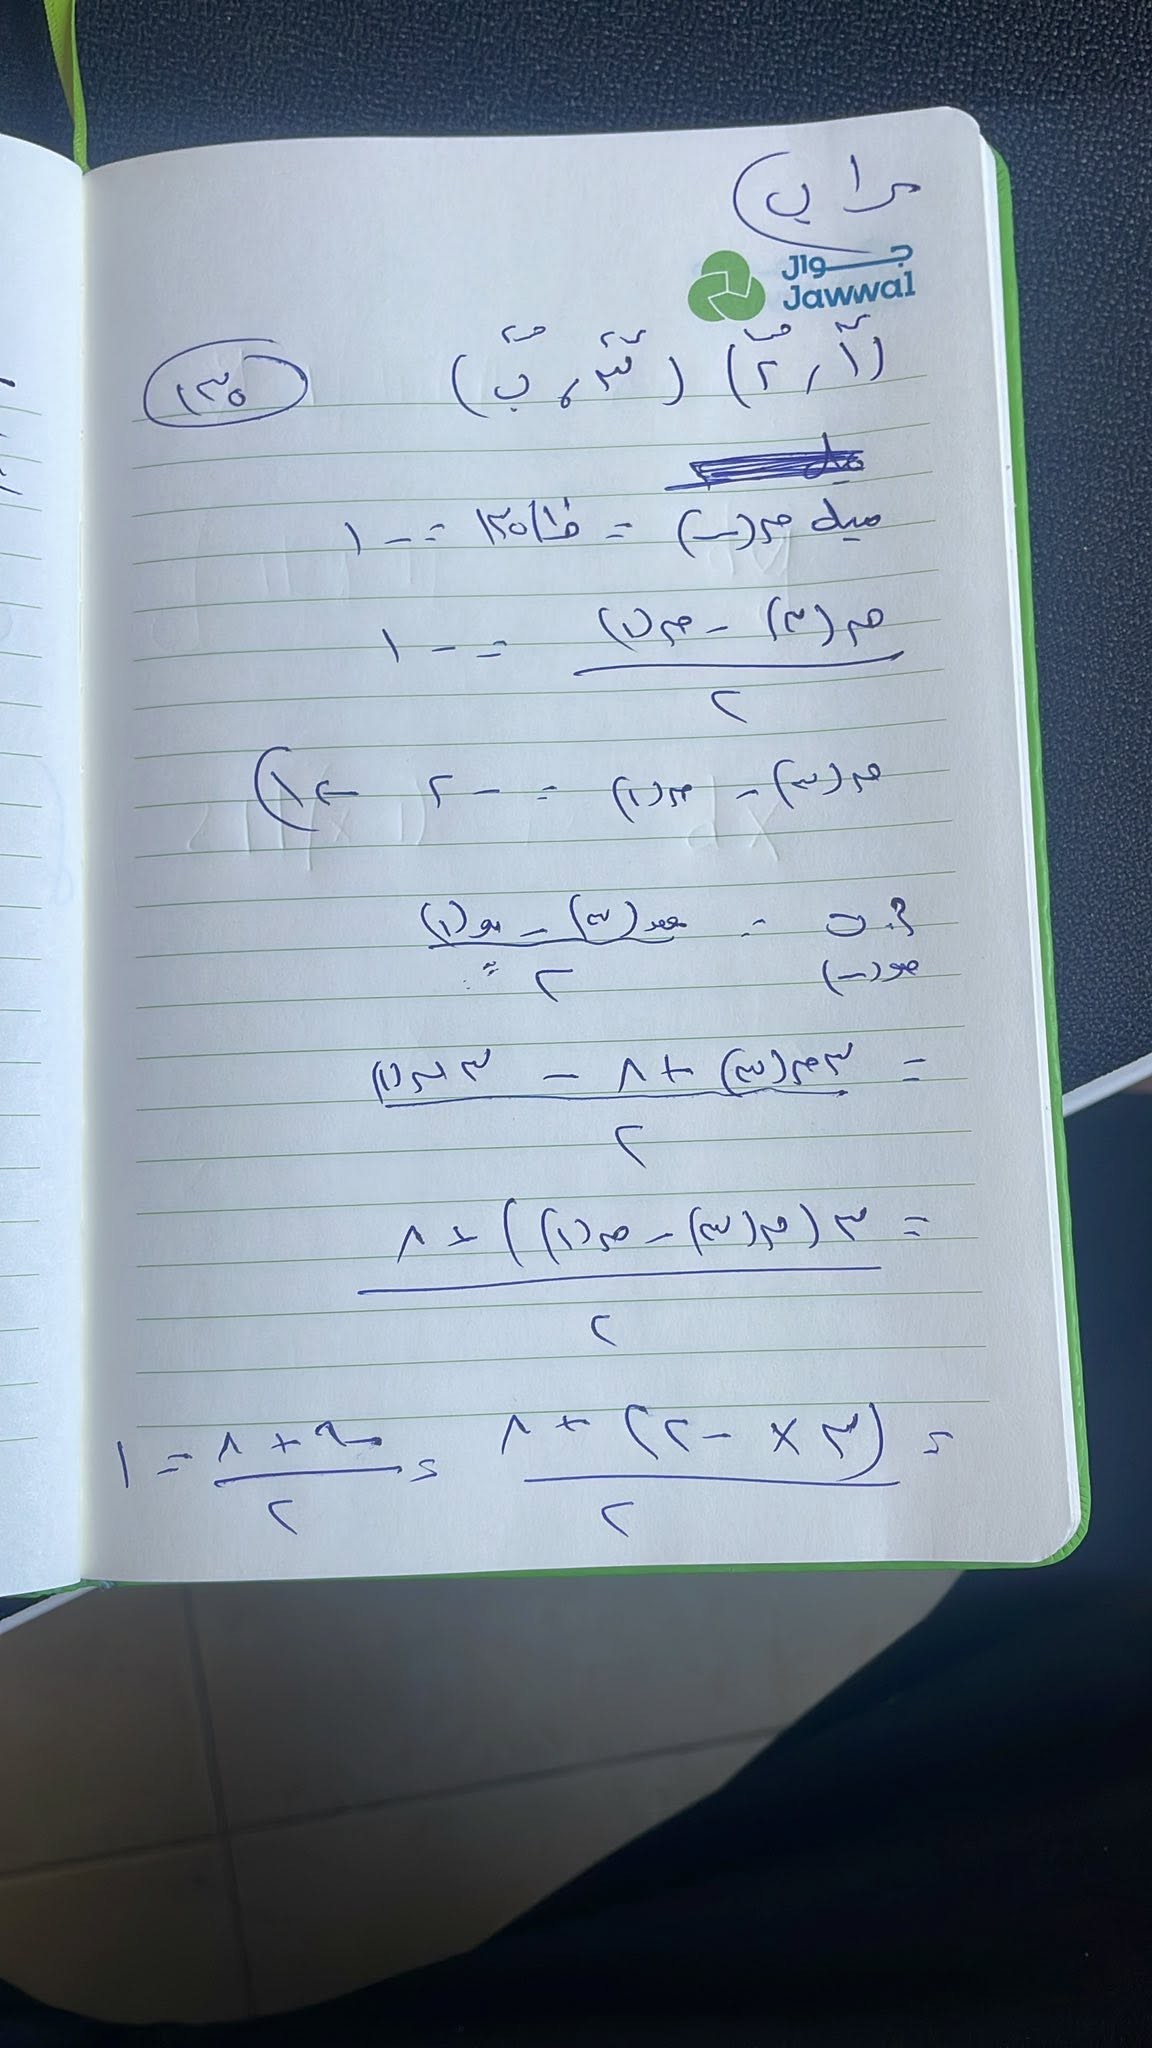 جوال
Jawwal
(١ ، ٢) (٣ ، ب) ١٣٥
ميل ق(س) = ظا١٣٥ = - ١
ق(٣) - ق(١) = - ١
٢
ق(٣) - ق(١) = - ٢
= هـ(٣) - هـ(١)
٢
هـ(س)
= ٣ق(٣) + ٨ - ٣ق(١)
٢
= ٣(ق(٣) - ق(١)) + ٨
٢
= (٣ × -٢) + ٨ = -٦ + ٨ = ١
٢ ٢